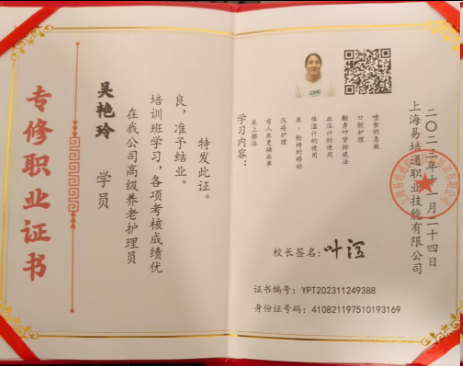 专修职业证书
吴艳玲 学员
在我公司高级养老护理员
培训班学习，各项考核成绩优
良，准予结业。
特发此证。
学习内容：
床上擦浴
有人床更换床单
压疮护理
床-轮椅的移动
体温计的使用
血压计的使用
翻身叩背排痰法
口腔护理
噎食的急救
上海易培通职业技能有限公司
二〇二三年十一月二十四日
校长签名：
证书编号：YPT202311249388
身份证号码：410821197510193169